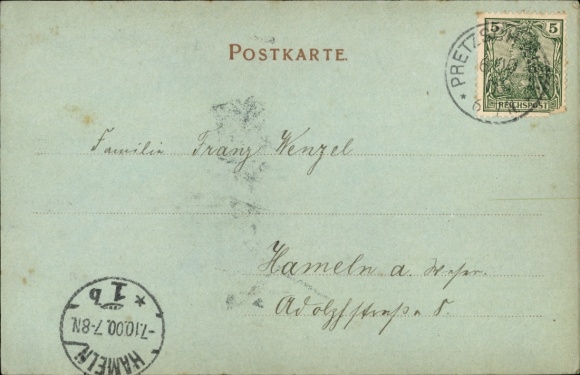 POSTKARTE.
5 5
REICHSPOST
Familie Franz Wenzel
Hameln a. Weser.
Adolfstraße
HAMELN
-7.10.00.7-8N.
* 1b